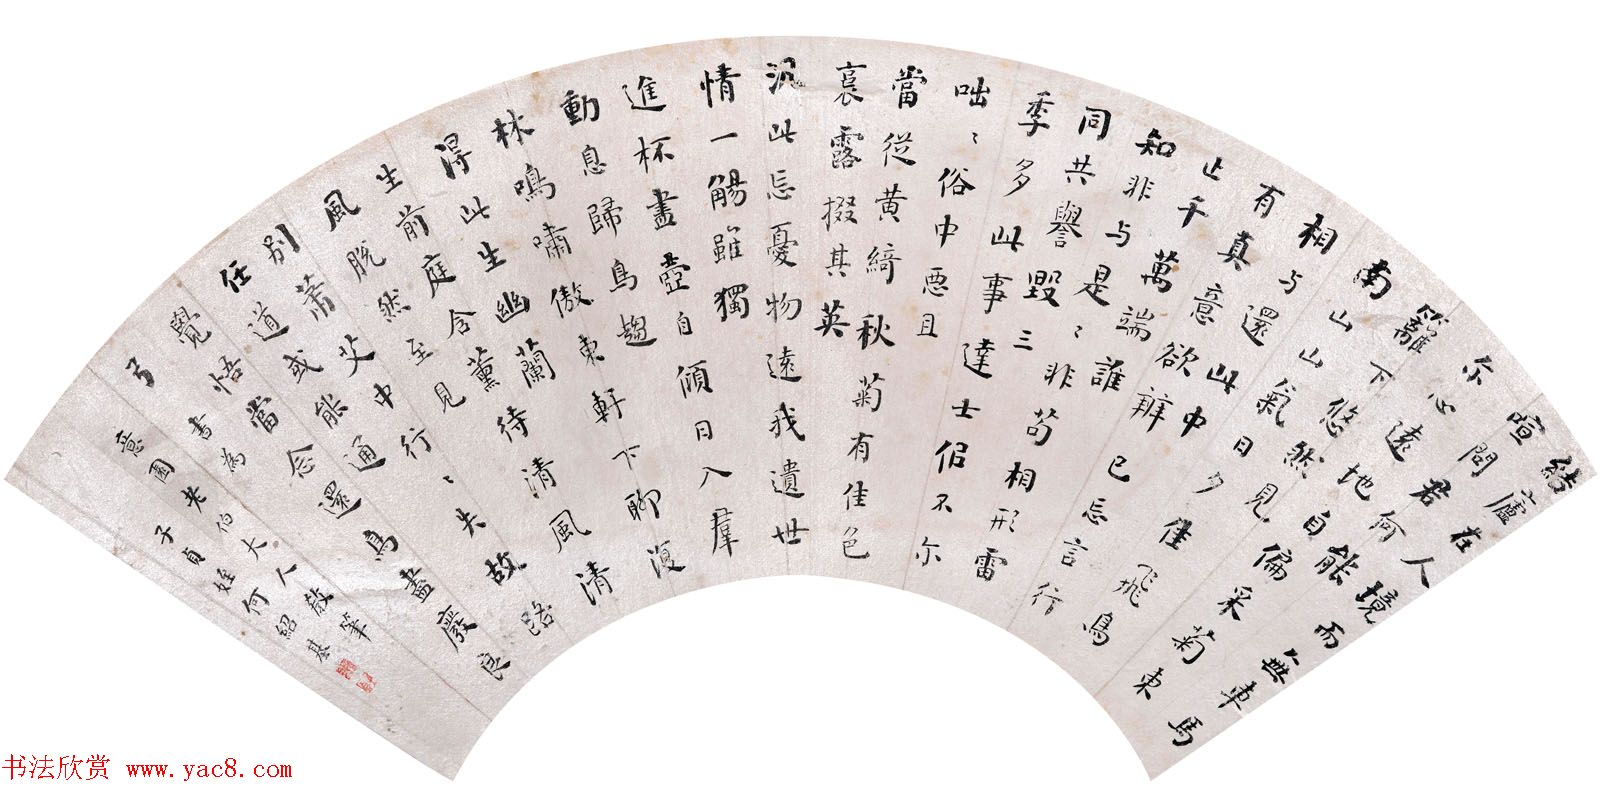 結廬在人境而無車馬
喧問君何能
尔心遠地自偏采菊東
籬下悠然見
南山山氣日夕佳飛鳥
相与還此中
有真意欲辨已忘言行
止千萬端誰
知非与是〻非苟相形雷
同共譽毀三
季多此事達士佀不尔
咄〻俗中惡且
當從黃綺秋菊有佳色
裛露掇其英
汎此忘憂物遠我遺世
情一觴雖獨
進杯盡壺自傾日入羣
動息歸鳥趨
林鳴嘯傲東軒下聊復
得此生幽蘭
生前庭含薰待清風清
風脫然至見
別蕭艾中行〻失故路
任道或能通
覺悟當念還鳥盡廢良
弓 書為
意園老伯大人教筆
子貞姪何紹基
书法欣赏 www.yac8.com